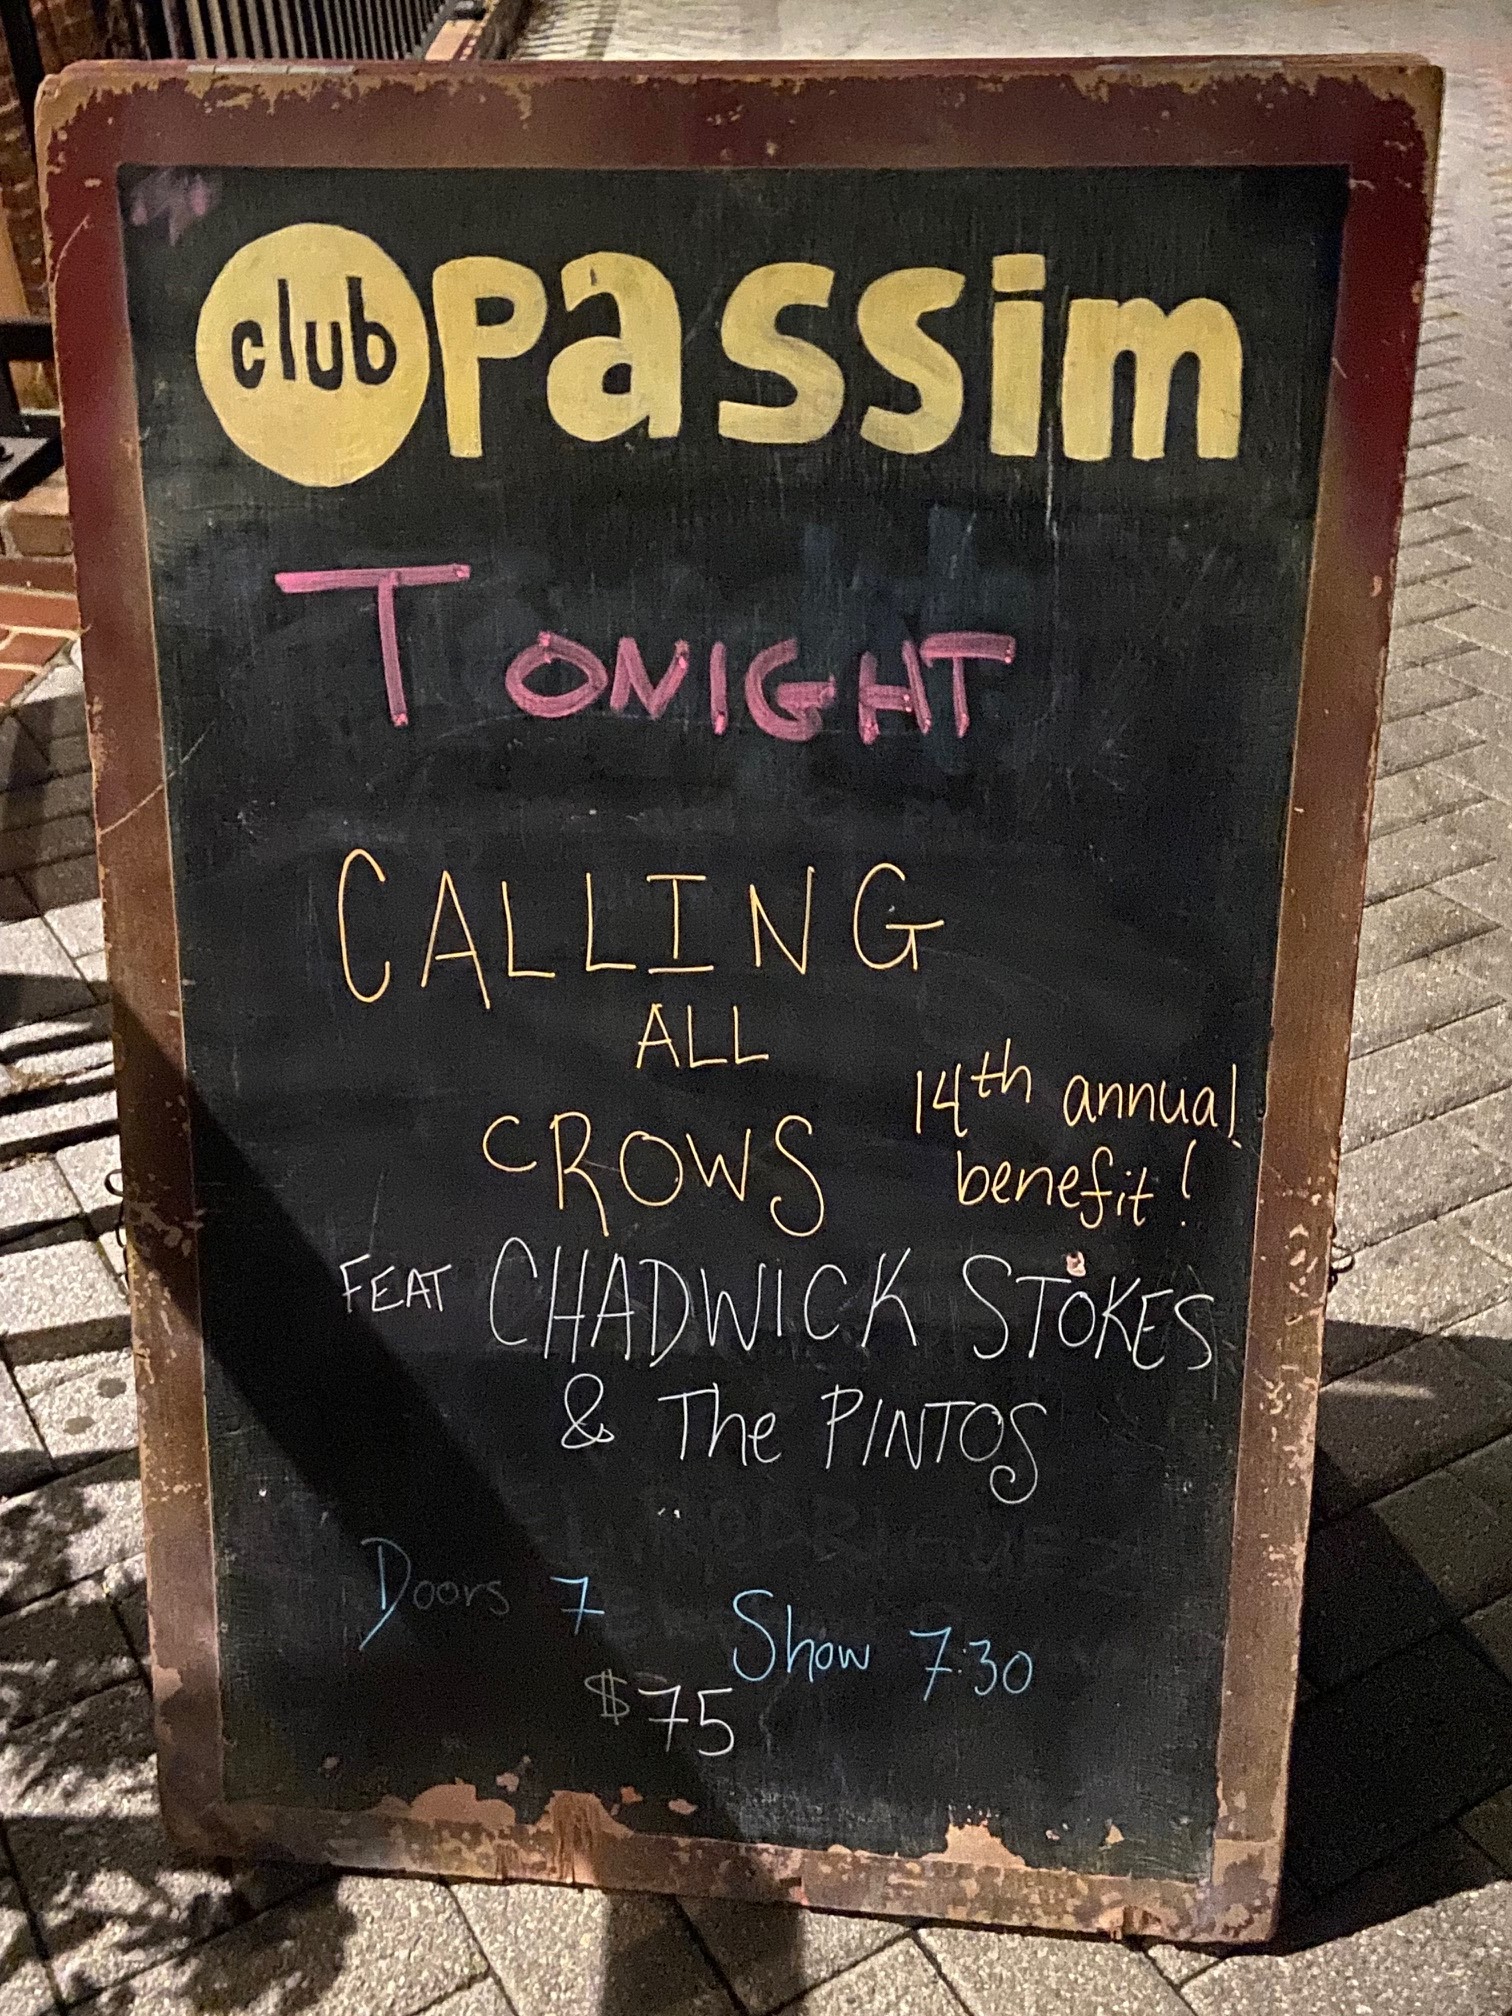 club passim
TONIGHT
CALLING
ALL
CROWS
14th annual
benefit!
FEAT CHADWICK STOKES
& The PINTOS
Doors 7 Show 7:30
$75